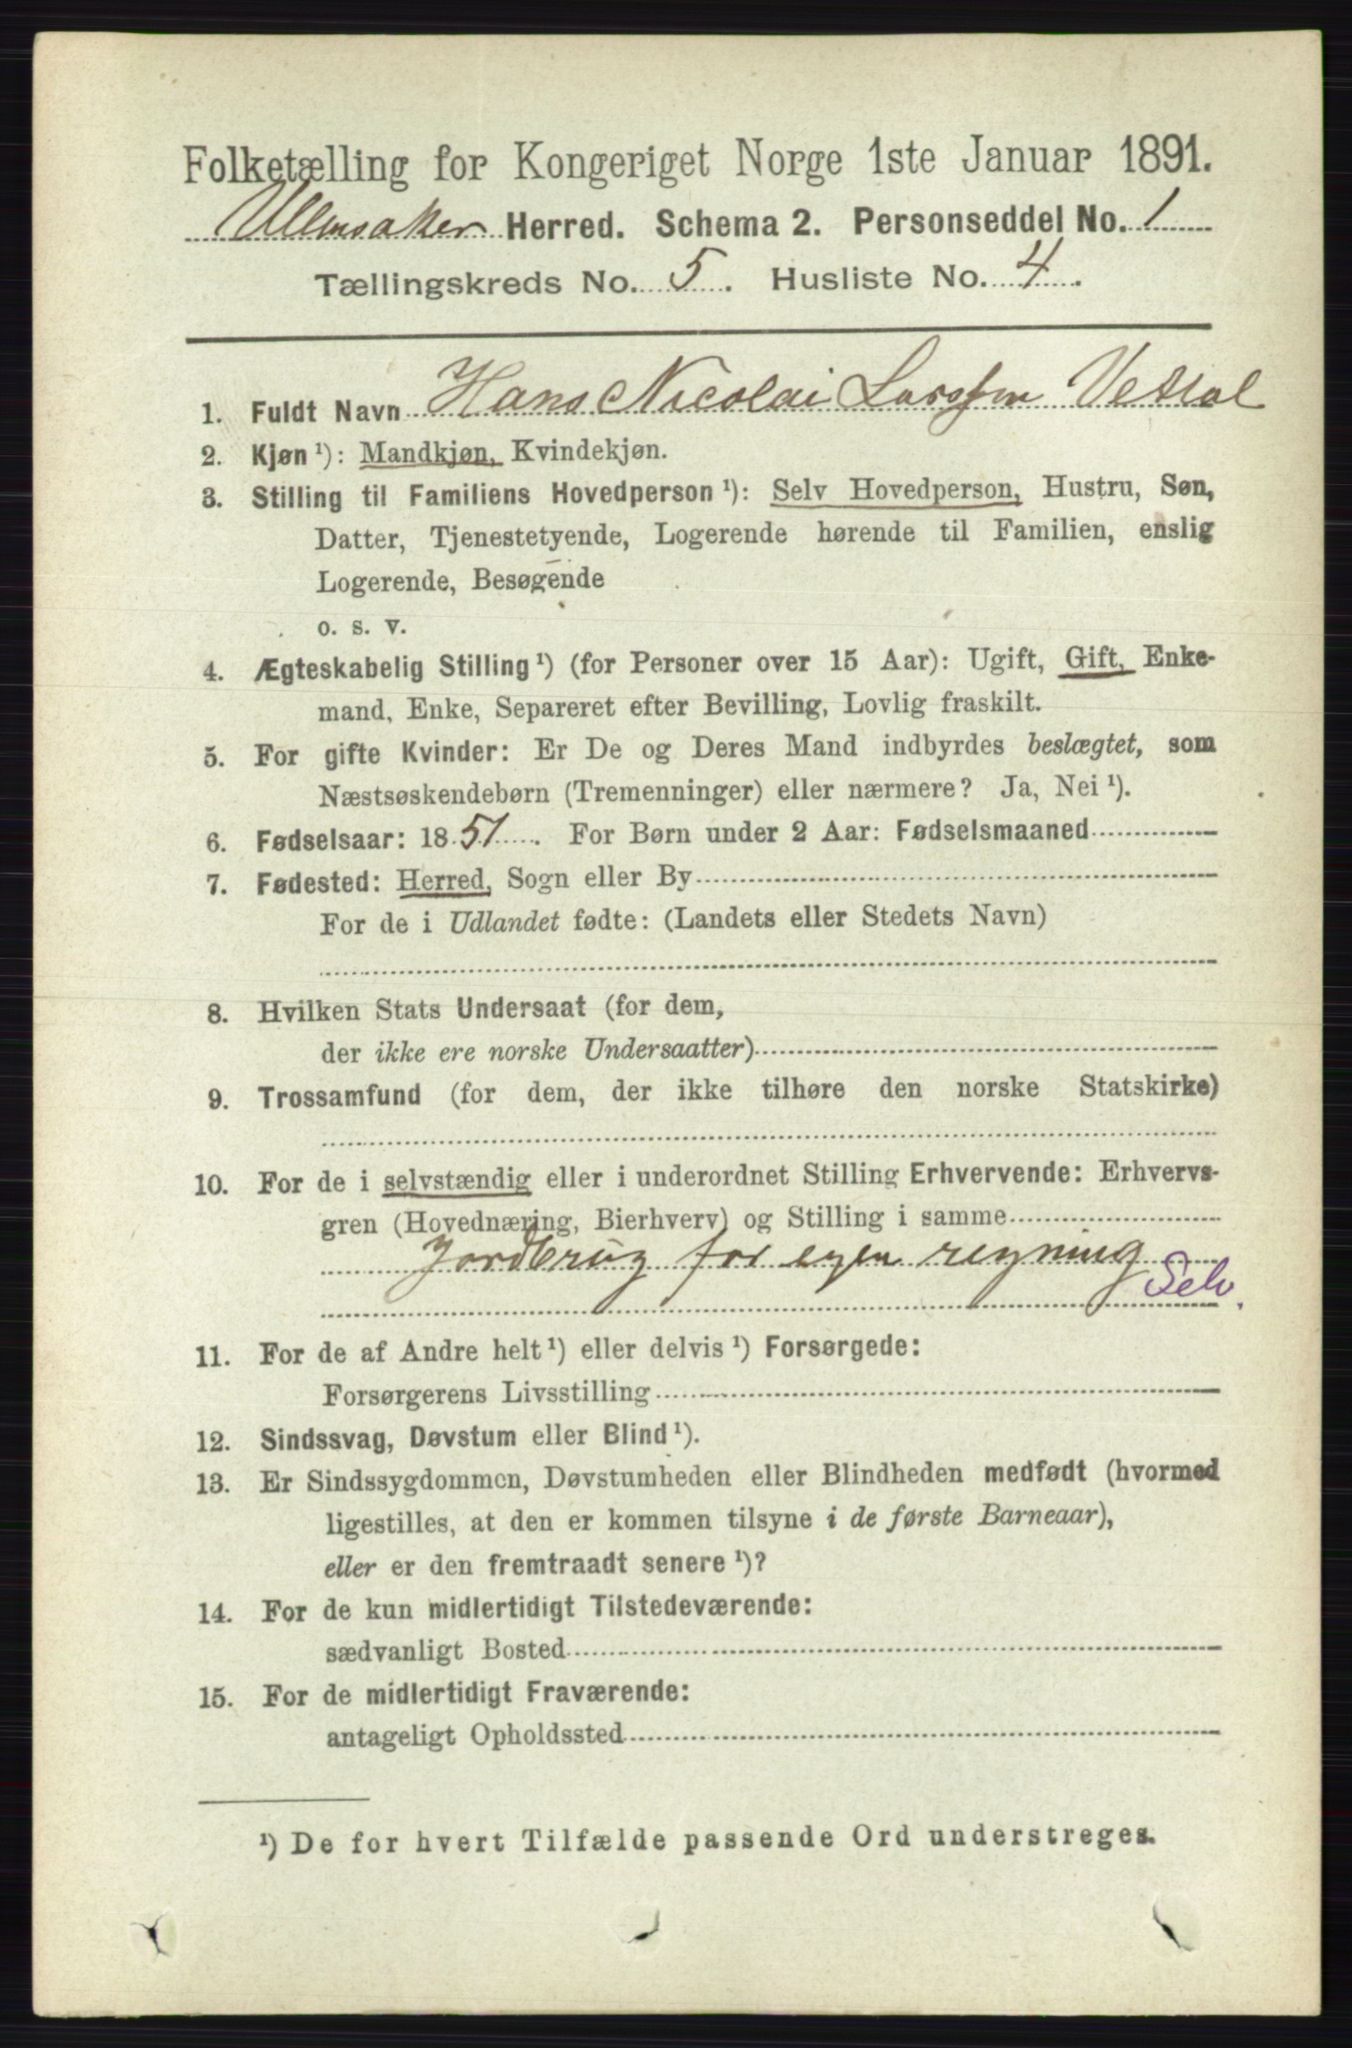 Folketælling for Kongeriget Norge 1ste Januar 1891.
Ullensaker Herred. Schema 2. Personseddel No. 1
Tællingskreds No. 5. Husliste No. 4.
1. Fuldt Navn Hans Nicolai Larssen
2. Kjøn ¹): Mandkjøn, Kvindekjøn.
3. Stilling til Familiens Hovedperson ¹): Selv Hovedperson, Hustru, Søn,
Datter, Tjenestetyende, Logerende hørende til Familien, enslig
Logerende, Besøgende
o. s. v.
4. Ægteskabelig Stilling ¹) (for Personer over 15 Aar): Ugift, Gift, Enke-
mand, Enke, Separeret efter Bevilling, Lovlig fraskilt.
5. For gifte Kvinder: Er De og Deres Mand indbyrdes beslægtet, som
Næstsøskendebørn (Tremenninger) eller nærmere? Ja, Nei ¹).
6. Fødselsaar: 1851. For Børn under 2 Aar: Fødselsmaaned
7. Fødested: Herred, Sogn eller By
For de i Udlandet fødte: (Landets eller Stedets Navn)
8. Hvilken Stats Undersaat (for dem,
der ikke ere norske Undersaatter)
9. Trossamfund (for dem, der ikke tilhøre den norske Statskirke)
10. For de i selvstændig eller i underordnet Stilling Erhvervende: Erhvervs-
gren (Hovednæring, Bierhverv) og Stilling i samme
Jordbrug for egen regning
Selv.
11. For de af Andre helt ¹) eller delvis ¹) Forsørgede:
Forsørgerens Livsstilling
12. Sindssvag, Døvstum eller Blind ¹).
13. Er Sindssygdommen, Døvstumheden eller Blindheden medfødt (hvormed
ligestilles, at den er kommen tilsyne i de første Barneaar),
eller er den fremtraadt senere ¹)?
14. For de kun midlertidigt Tilstedeværende:
sædvanligt Bosted
15. For de midlertidigt Fraværende:
antageligt Opholdssted
¹) De for hvert Tilfælde passende Ord understreges.